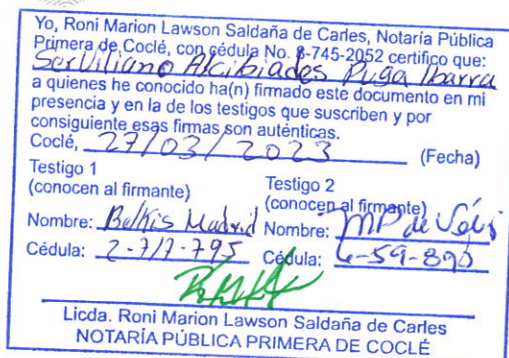 Yo, Roni Marion Lawson Saldaña de Carles, Notaría Pública
Primera de Coclé, con cédula No. 8-745-2052 certifico que:
Serviliano Alcibiades Puga Ibarra
a quienes he conocido ha(n) firmado este documento en mi
presencia y en la de los testigos que suscriben y por
consiguiente esas firmas son auténticas.
Coclé, 27/03/2023 (Fecha)
Testigo 1
(conocen al firmante)
Nombre: Belkis Madrid
Cédula: 2-717-795
Testigo 2
(conocen al firmante)
Nombre: MP de
Cédula: 6-59-890
Licda. Roni Marion Lawson Saldaña de Carles
NOTARÍA PÚBLICA PRIMERA DE COCLÉ